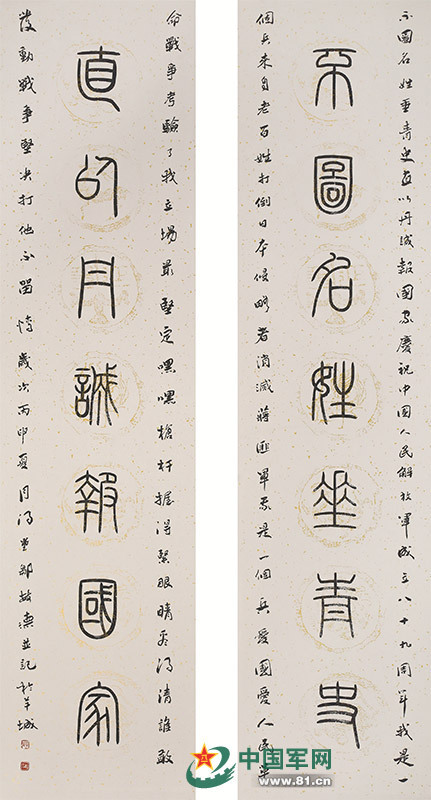 不圖名姓垂青史直以丹誠報國家慶祝中国人民解放軍成立八十九周年我是一
不圖名姓垂青史
個兵来自老百姓打倒日本侵略者消滅蔣匪軍我是一個兵愛國愛人民革
命戰争考驗了我立場最堅定嘿嘿槍杆握得緊眼睛看得清誰敢
直以丹誠報國家
發動戰争堅决打他不留情歲次丙申夏月得堂鄒並記於羊城
中国军网
www.81.cn